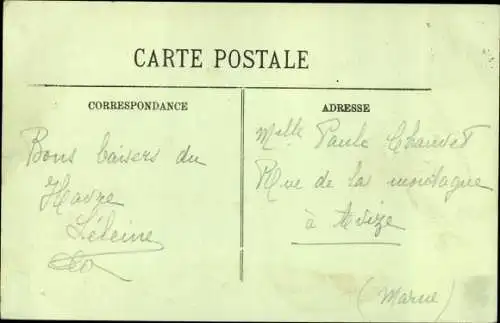 CARTE POSTALE
CORRESPONDANCE
Bons baisers du
Havre
ADRESSE
Melle Paule Chauvet
Rue de la montagne
à Avize
(Marne)